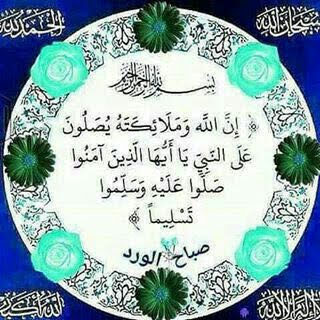 الحمد لله
سبحان الله
بسم الله الرحمن الرحيم
﴿ إِنَّ اللَّه وَمَلَائِكَتَهُ يُصَلُّونَ
عَلَى النَّبِيِّ يَا أَيُّهَا الَّذِينَ آمَنُوا
صَلُّوا عَلَيْهِ وَسَلِّمُوا
تَسْلِيماً ﴾
صباح الورد
الله أكبر
لا إله إلا الله